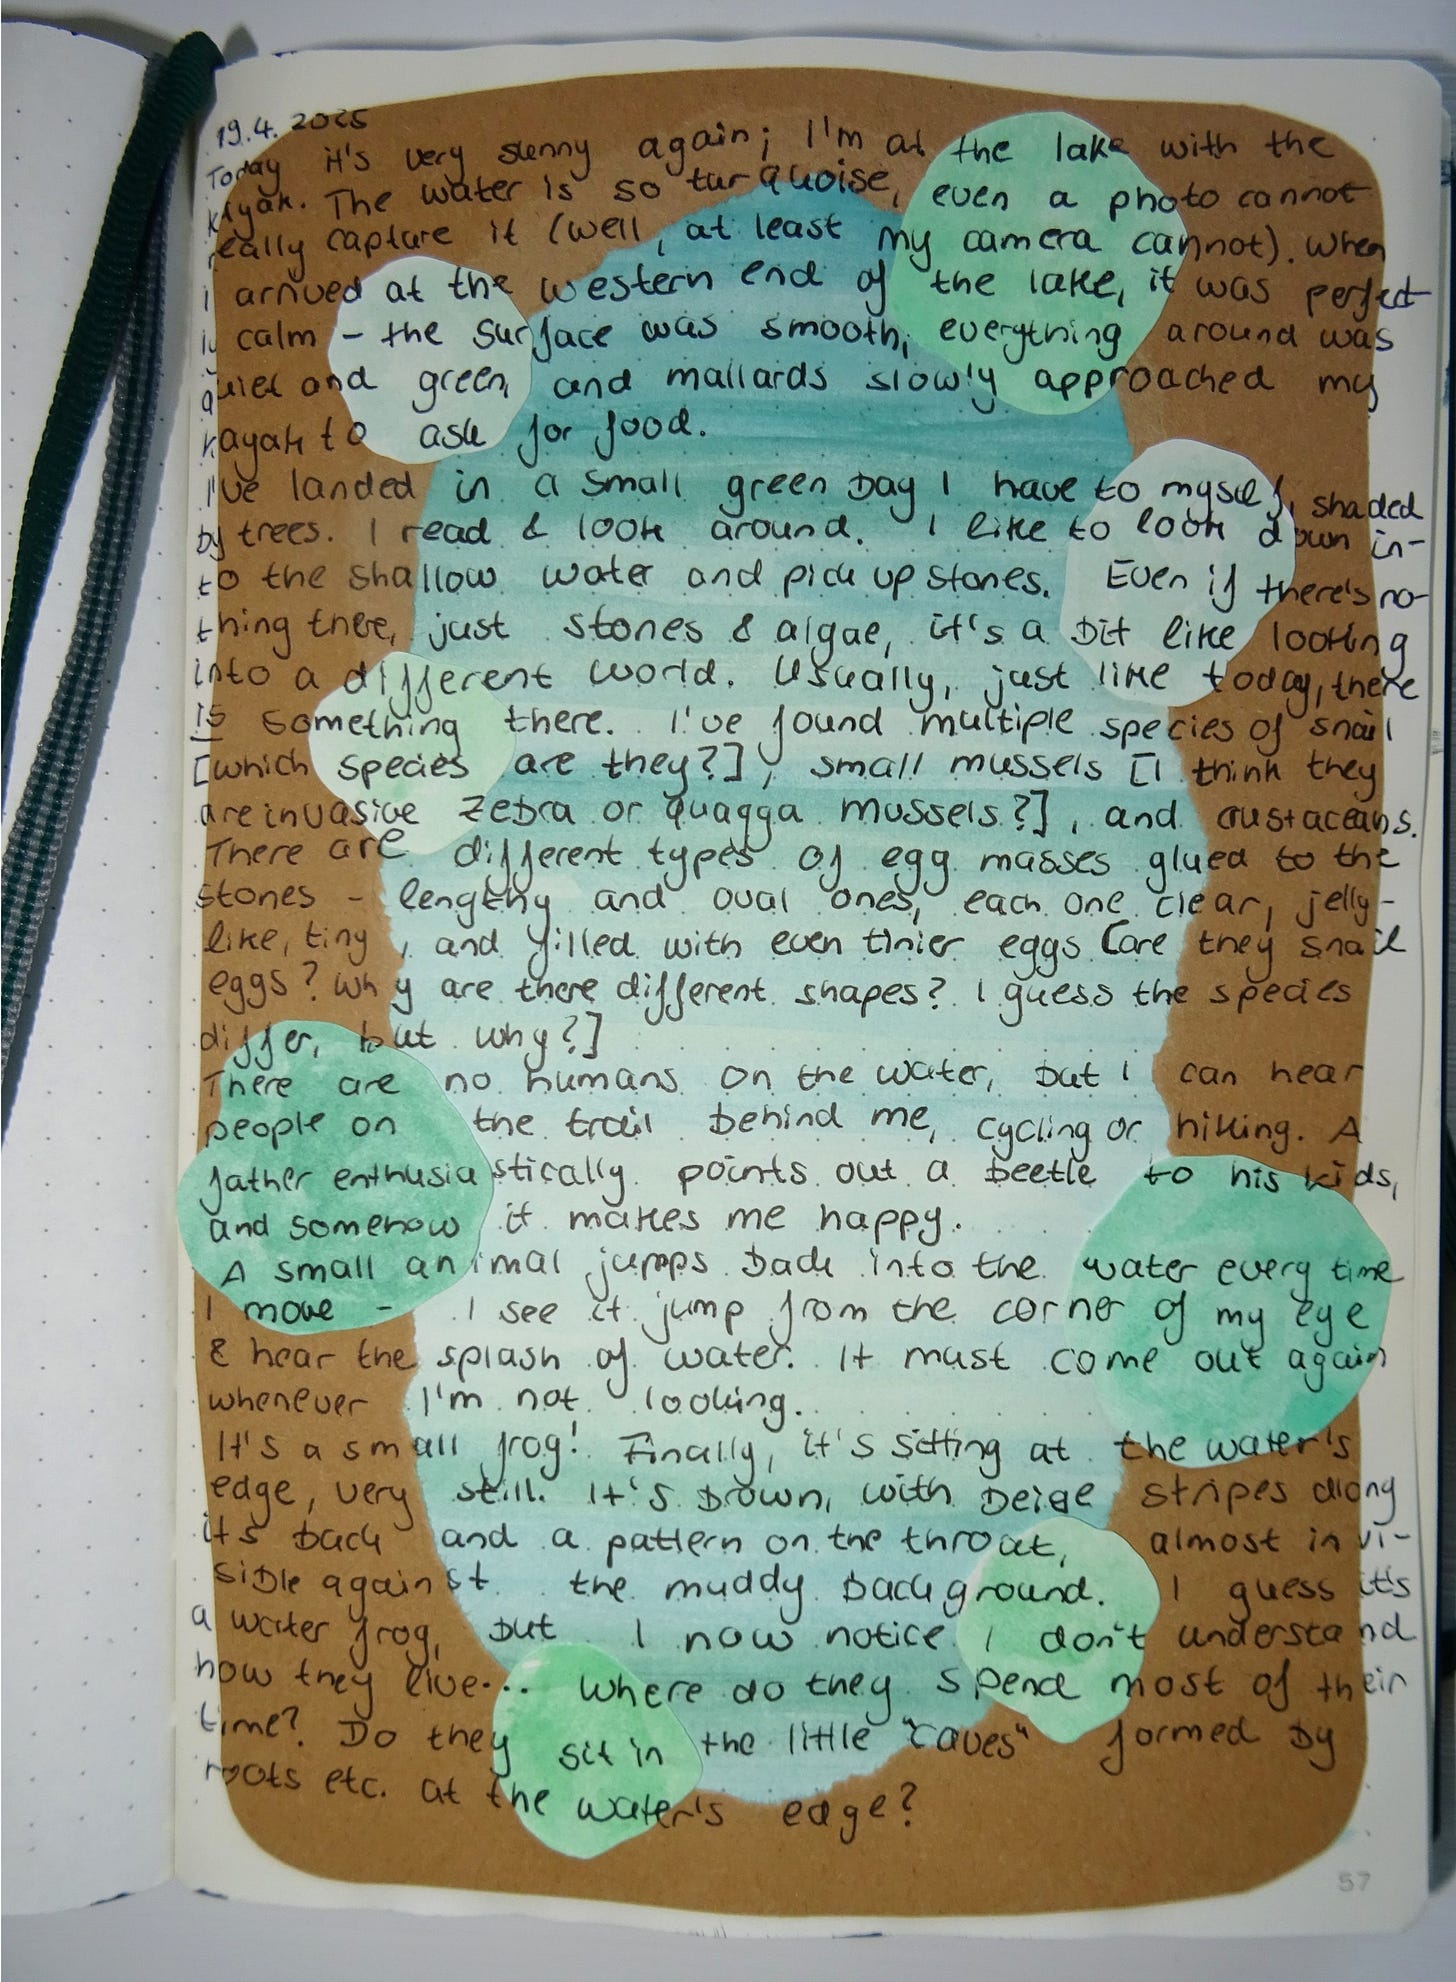 19.4. 2025
Today it's very sunny again; I'm at the lake with the
kayak. The water is so turquoise, even a photo cannot
really capture it (well, at least my camera cannot). When
i arrived at the western end of the lake, it was perfect
ly calm – the surface was smooth, everything around was
quiet and green, and mallards slowly approached my
kayak to ask for food.
I've landed in a small green bay I have to myself, shaded
by trees. I read & look around. I like to look down in-
to the shallow water and pick up stones. Even if there's no-
thing there, just stones & algae, it's a bit like looking
into a different world. Usually, just like today, there
is something there. I've found multiple species of snail
[which species are they?], small mussels [I think they
are invasive zebra or quagga mussels?], and crustaceans.
There are different types of egg masses glued to the
stones – lengthy and oval ones, each one clear, jelly-
like, tiny, and filled with even tinier eggs [are they snail
eggs? Why are there different shapes? I guess the species
differ, but why?]
There are no humans on the water, but I can hear
people on the trail behind me, cycling or hiking. A
father enthusiastically points out a beetle to his kids,
and somehow it makes me happy.
A small animal jumps back into the water every time
I move – I see it jump from the corner of my eye
& hear the splash of water. It must come out again
whenever I'm not looking.
It's a small frog! Finally, it's sitting at the water's
edge, very still. It's brown, with beige stripes along
its back and a pattern on the throat, almost invi-
sible against the muddy background. I guess it's
a water frog, but I now notice I don't understand
how they live... Where do they spend most of their
time? Do they sit in the little "caves" formed by
roots etc. at the water's edge?
57